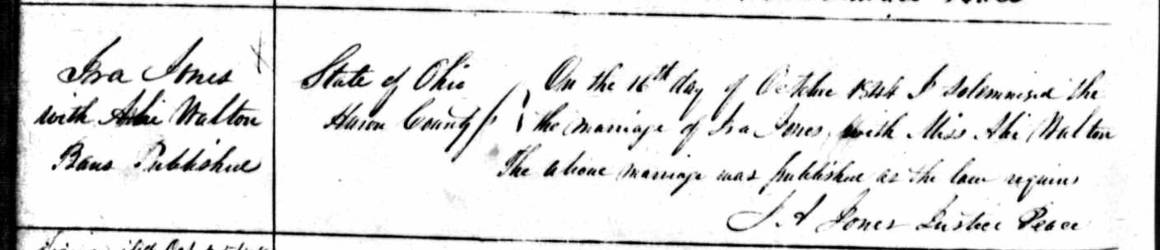 Ira Jones
with Abi Walton
Bans Published
State of Ohio
Huron County ss
On the 16th day of October 1844 I solemnised the
the marriage of Ira Jones with Miss Abi Walton
The above marriage was published as the law requires
J A Jones Justice Peace